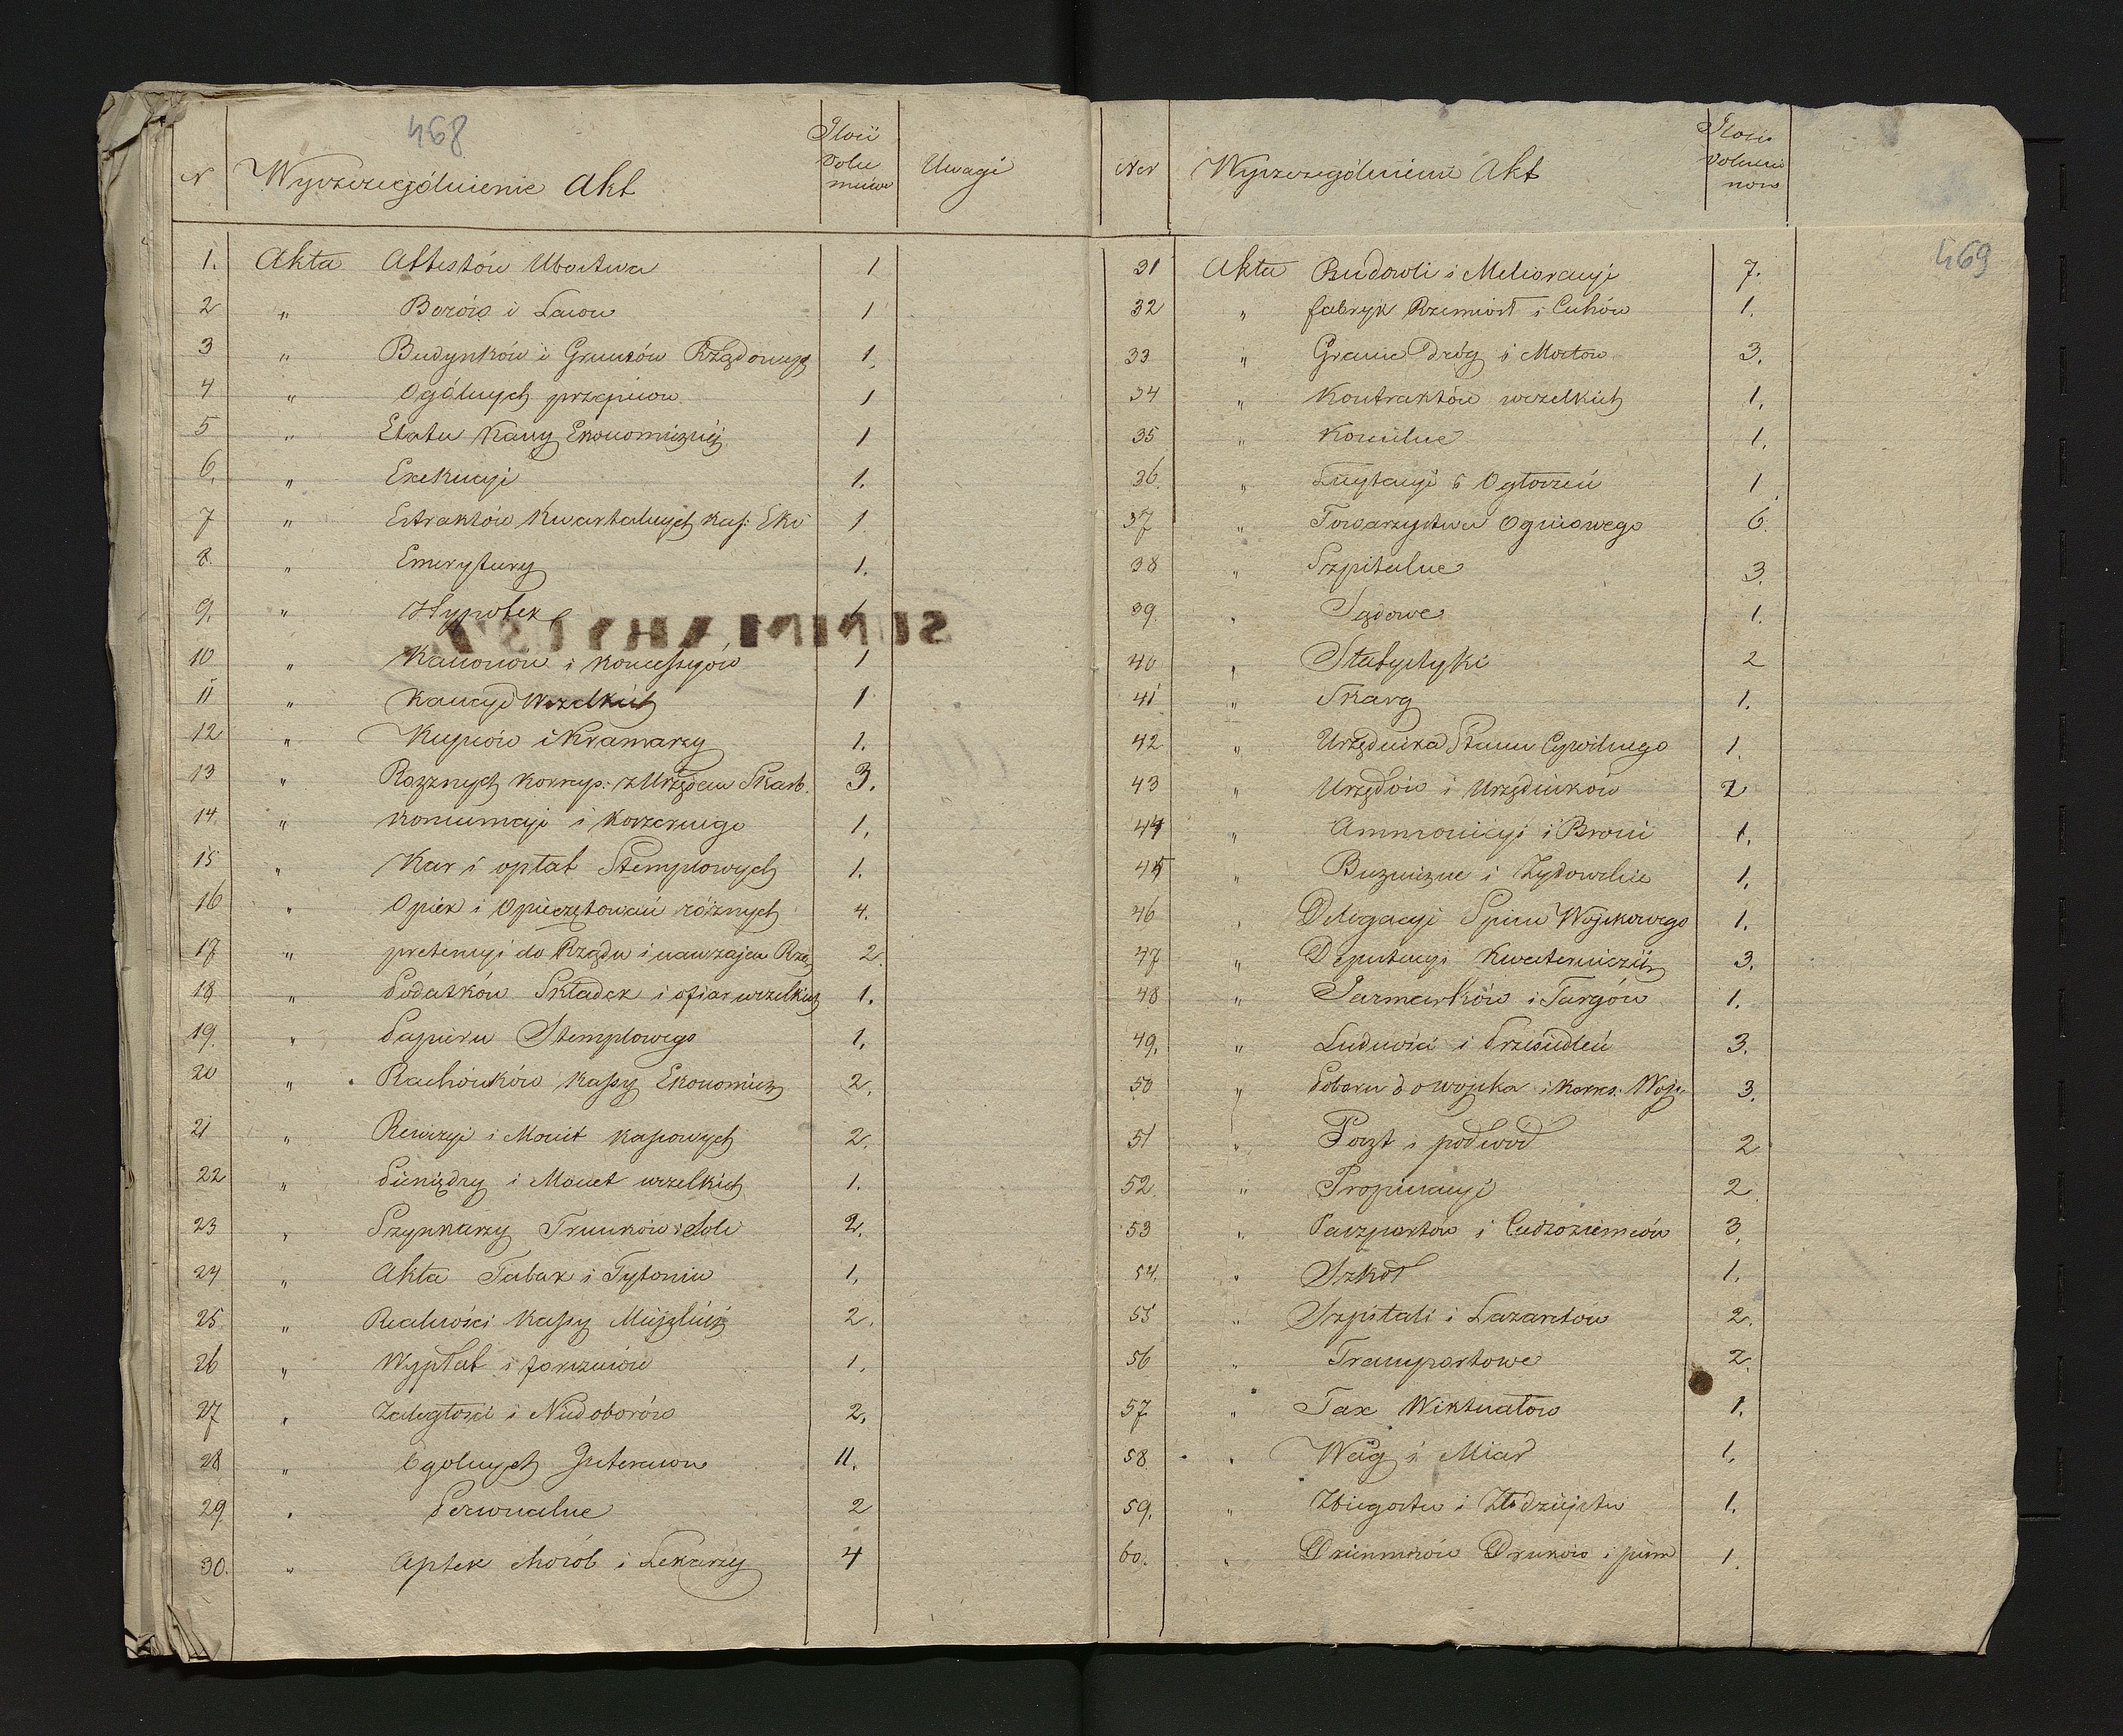 468
N Wyszczególnienie Akt Ilość Volu minów Uwagi
1. Akta Attestów Ubostwa 1
2 " Borów i Lasow 1
3 " Budynków i Gruntów Rządowych 1.
4 " Ogólnych przepisow 1
5 " Etatu Kassy Ekonomicznéj 1
6. " Exekucyi 1.
7 " Extraktów Kwartalnych Kass: Eko 1
8. " Emerytury 1.
9. " Hypotek 1
10 " Kanonow i Konsensów 1
11 " Kaucyi Wszelkich 1
12 " Kupców i Kramarzy 1.
13 " Rozznych Korresp: z Urzędem Skarb. 3.
14. " Konsumcyi i Koszernego 1.
15 " Kar i opłat Stemplowych 1.
16 " Opiek i Opieczętowań różnych 4.
17 " pretensyi do Rządu i nawzajem Rzą 2.
18 " Podatków Składek i ofiar wszelkich 1.
19. " Papieru Stemplowego 1.
20 " Rachónków Kassy Ekonomicz 2.
21 " Rewizyi i Monit Kassowych 2.
22 " Pieniędzy i Monet wszelkich 1.
23 " Szynkarzy Trunków i Soli 2.
24 " Akta Tabak i Tytoniu 1.
25. " Realności Kassy Miejskiéj 2.
26 " Wypłat i 1.
27 " Zaległości i Niedoborów 2.
28 " Ogolnych Interessow 11.
29. " Personalne 2
30. " Aptek Chorób i Lekarzy 4
469
Ner Wyszczególnienie Akt Ilosc Volumi now
31 Akta Budowli i Melioracyi 7.
32 " fabryk Rzemiosł i Cechów 1.
33 " Granic Dróg i Mostow 3.
34 " Kontraktów wszelkich 1.
35 " Koscielne 1.
36. " Licytacyi i Ogłoszeń 1
37 " Towarzystwa Ogniowego 6.
38 " Szpitalne 3.
39. " Sądowe 1.
40 " Statystyki 2
41 " Skarg 1.
42 " Urzędnika Stanu Cywilnego 1.
43 " Urzędów i Urzędników 2
44 " Ammonicyi i Broni 1.
45 " Buznicze i Żydowskie 1.
46 " Delegacyi Spisu Wojskowego 1.
47 " Deputacyi Kwaterniczéj 3.
48 " Jarmarków i Targów 1.
49. " Ludności i Przesiedleń 3.
50 " Poboru do wojska i Korres. Wojs. 3.
51 " Poczt i podwod 2
52. " Propinacyi 2.
53 " Paszportów i Cudzoziemców 3.
54. " Szkoł 1.
55 " Szpitali i Lazaretów 2.
56 " Transportowe 2.
57 " Tax Wiktuałów 1.
58 " Wag i Miar 1.
59. " Zbiegostw i Złodziejstw 1.
60. " Dzienników Druków i pism 1.